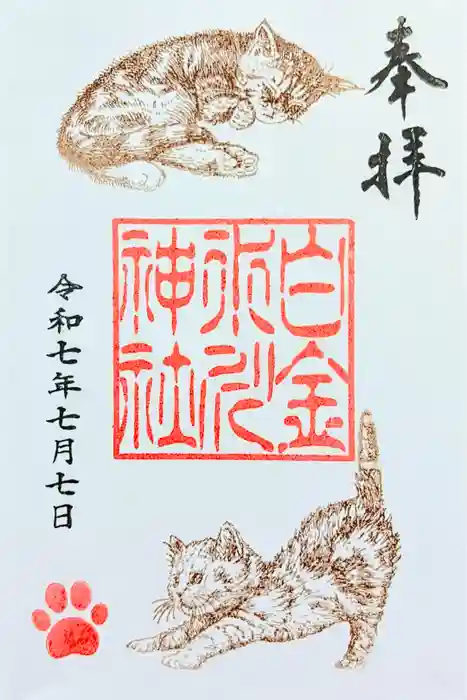 奉拝
白金
氷川
神社
令和七年七月七日